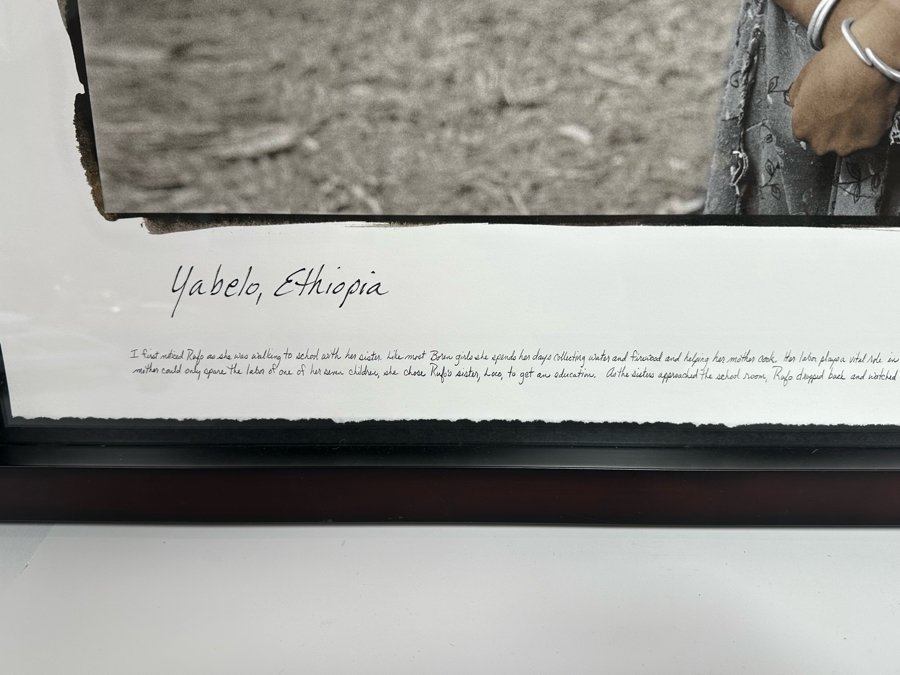 Yabelo, Ethiopia
I first noticed Rufo as she was walking to school with her sister. Like most Boran girls she spends her days collecting water and firewood and helping her mother cook. Her labor plays a vital role in
mother could only spare the labor of one of her seven children, she chose Rufo's sister, Loco, to get an education. As the sisters approached the school room, Rufo dropped back and watched